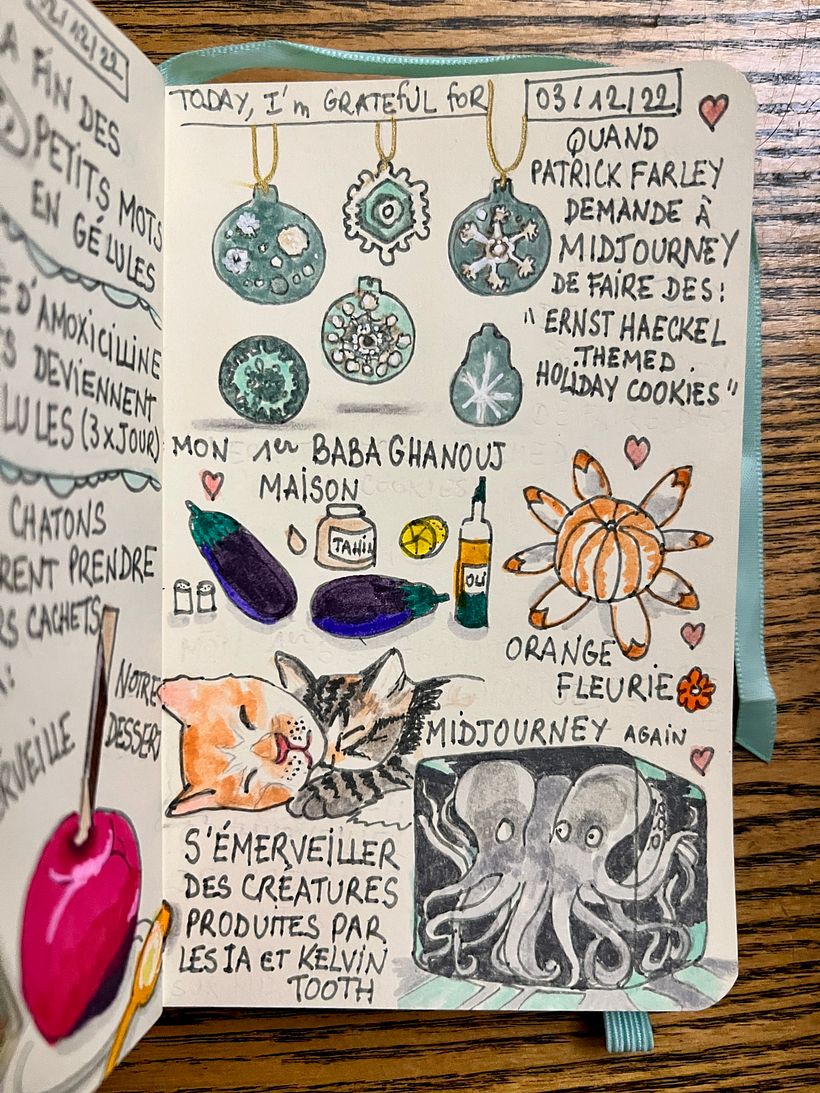 02/12/22
A FIN DES
PETITS MOTS
EN GÉLULES
D'AMOXICILLINE
DEVIENNENT
(3xJOUR)
CHATONS
PRENDRE
CACHETS
NOTRE
DESSERT
TODAY, I'm GRATEFUL FOR
03/12/22
QUAND
PATRICK FARLEY
DEMANDE À
MIDJOURNEY
DE FAIRE DES:
"ERNST HAECKEL
THEMED
HOLIDAY COOKIES"
MON 1er BABA GHANOUJ
MAISON
TAHIN
OLI
ORANGE
FLEURIE
MIDJOURNEY AGAIN
S'ÉMERVEILLER
DES CRÉATURES
PRODUITES PAR
LES IA ET KELVIN
TOOTH